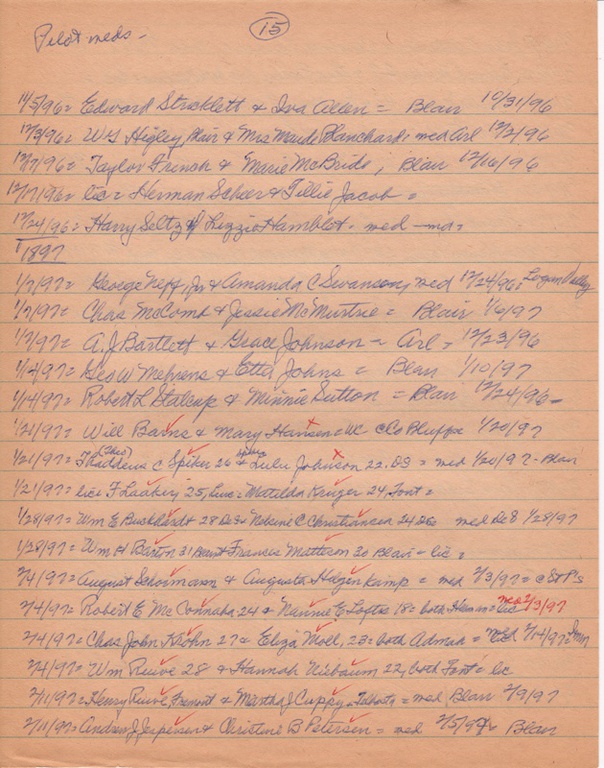 15
Pilot meds -
11/5/96= Edward Stricklett & Iva Allen = Blair 10/31/96
12/3/96= W S Higley, Blair & Mrs Maude Blanchard, med Arl 12/2/96
12/17/96= Taylor French & Marie McBride, Blair 12/16/96
12/17/96= lic = Herman Scheer & Tillie Jacob =
12/24/96= Harry Seltz & Lizzie Hamblot - med - md=
1897
1/7/97= George Neff, Jr & Amanda C Swanson, med 12/24/96= Logan Valley
1/7/97= Chas McComb & Jessie McMurtrie = Blair 1/6/97
1/7/97= A J Bartlett & Grace Johnson - Arl - 12/23/96
1/14/97= Geo W Mehrens & Etta Johns = Blair 1/10/97
1/14/97= Robert L Stalcup & Minnie Sutton = Blair 12/24/96-
1/21/97= Will Barns & Mary Hansen = Co Bluffs 1/20/97
1/21/97= Thaddeus C Spiker 26 & Lulu Johnson 22. DS = med 1/20/97 - Blair
1/21/97= lic= F Laaker, 25, = Matilda Kruger 24, Font =
1/28/97= Wm E Burkhardt 28 & C Christiansen 24 med 1/28/97
1/28/97= Wm H Barton 31 & Francis Matteson 30 Blair - lic =
2/4/97= August Scheumann & Augusta Hagenkamp = med 2/3/97=
2/4/97= Robert E McConnaha 24 & Nannie E Loftis 18 = both Herman = lic med 2/3/97
2/4/97= Chas John Krohn 27 & Eliza Moll, 23= both Admah = 2/14/97=
2/4/97= Wm Ruwe 28 & Hannah Niebaum 22, both Font = lic
2/11/97= Henry Ruwe, Fremont & Martha J Cuppy = med Blair 2/9/97
2/11/97= Andrew J Jespersen & Christine B Petersen = med 2/5/97 Blair